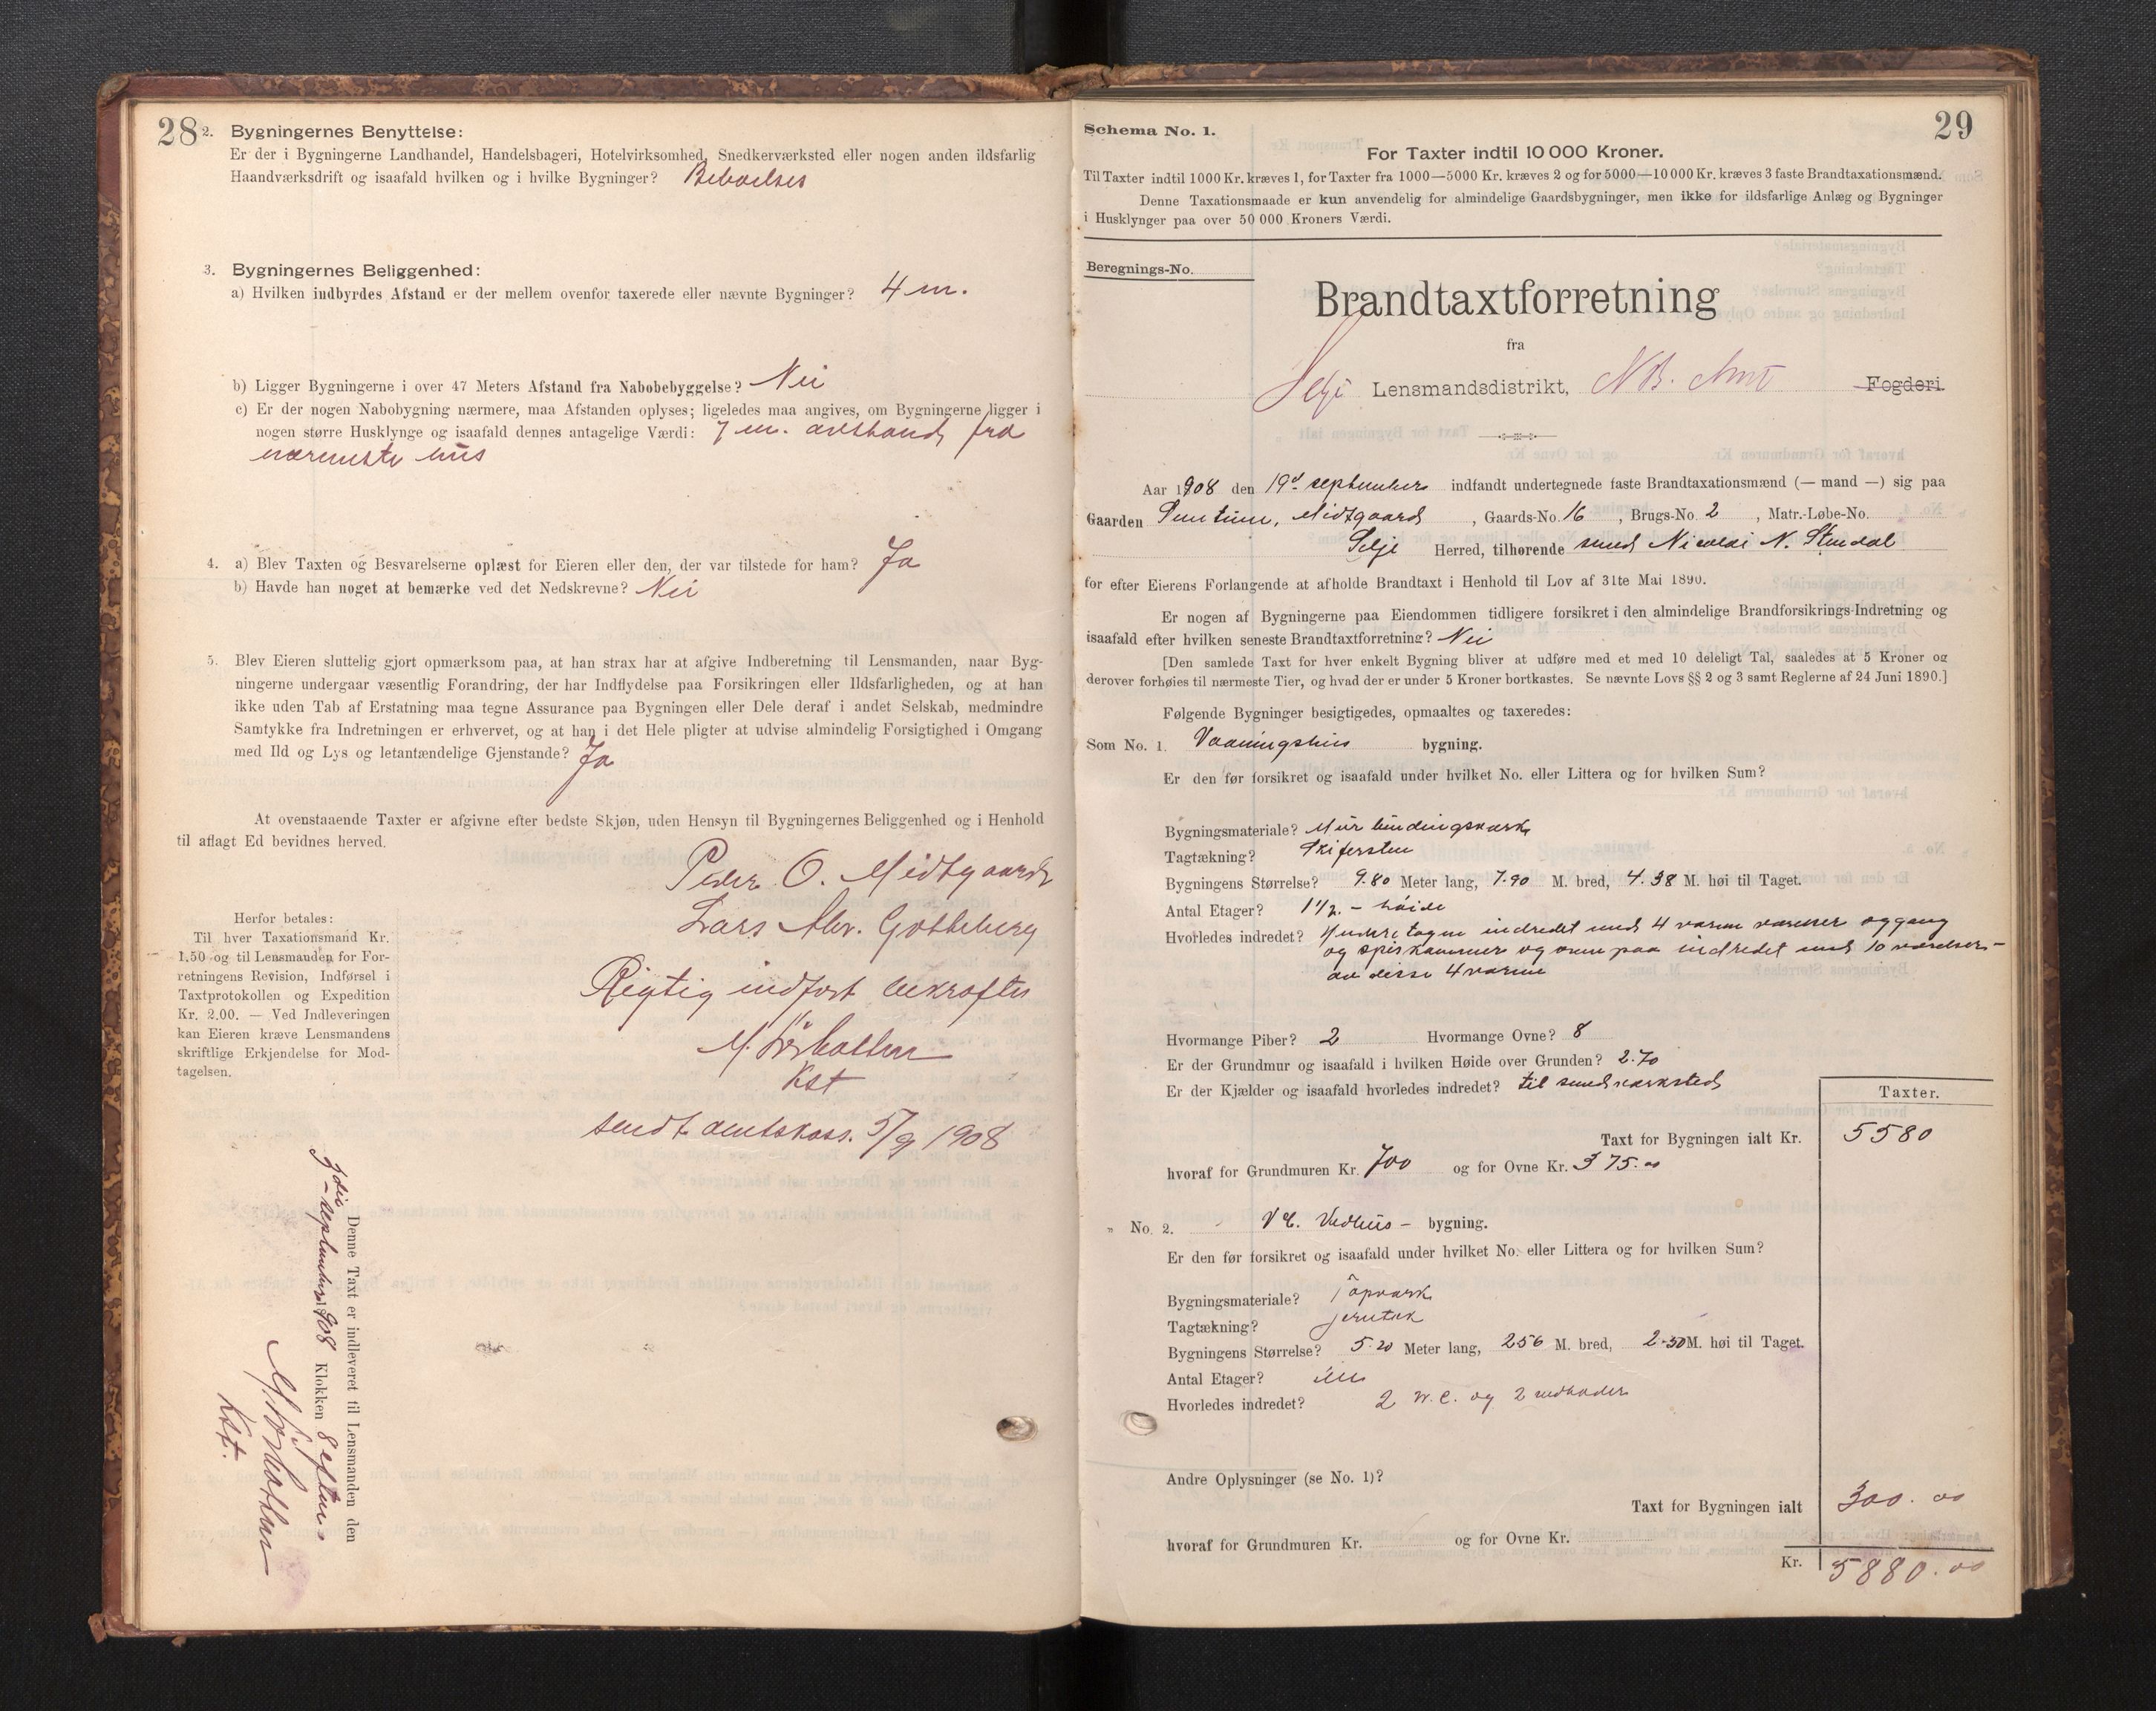 28
2. Bygningernes Benyttelse:
Er der i Bygningerne Landhandel, Handelsbageri, Hotelvirksomhed, Snedkerværksted eller nogen anden ildsfarlig
Haandværksdrift og isaafald hvilken og i hvilke Bygninger? Beboelses
3. Bygningernes Beliggenhed:
a) Hvilken indbyrdes Afstand er der mellem ovenfor taxerede eller nævnte Bygninger? 4 m.
b) Ligger Bygningerne i over 47 Meters Afstand fra Nabobebyggelse? Nei
c) Er der nogen Nabobygning nærmere, maa Afstanden oplyses; ligeledes maa angives, om Bygningerne ligger i
nogen større Husklynge og isaafald dennes antagelige Værdi: 7 m. avstand fra
nærmeste hus
4. a) Blev Taxten og Besvarelserne oplæst for Eieren eller den, der var tilstede for ham? Ja
b) Havde han noget at bemærke ved det Nedskrevne? Nei
5. Blev Eieren sluttelig gjort opmærksom paa, at han strax har at afgive Indberetning til Lensmanden, naar Byg-
ningerne undergaar væsentlig Forandring, der har Indflydelse paa Forsikringen eller Ildsfarligheden, og at han
ikke uden Tab af Erstatning maa tegne Assurance paa Bygningen eller Dele deraf i andet Selskab, medmindre
Samtykke fra Indretningen er erhvervet, og at han i det Hele pligter at udvise almindelig Forsigtighed i Omgang
med Ild og Lys og letantændelige Gjenstande? Ja
At ovenstaaende Taxter er afgivne efter bedste Skjøn, uden Hensyn til Bygningernes Beliggenhed og i Henhold
til aflagt Ed bevidnes herved.
Peder O. Midtgaard
Lars Abr. Gotteberg
Rigtig indført bekræftes
Kst
sendt amtskass. 5/9 1908
Herfor betales:
Til hver Taxationsmand Kr.
1,50 og til Lensmanden for For-
retningens Revision, Indførsel i
Taxtprotokollen og Expedition
Kr. 2.00. — Ved Indleveringen
kan Eieren kræve Lensmandens
skriftlige Erkjendelse for Mod-
tagelsen.
Denne Taxt er indleveret til Lensmanden den
3die september 1908 Klokken 8 efterm.
Kst.
29
Schema No. 1.
For Taxter indtil 10 000 Kroner.
Til Taxter indtil 1000 Kr. kræves 1, for Taxter fra 1000—5000 Kr. kræves 2 og for 5000—10 000 Kr. kræves 3 faste Brandtaxationsmænd.
Denne Taxationsmaade er kun anvendelig for almindelige Gaardsbygninger, men ikke for ildsfarlige Anlæg og Bygninger
i Husklynger paa over 50 000 Kroners Værdi.
Beregnings-No.
Brandtaxtforretning
fra
Selje Lensmandsdistrikt, N B. Amt Fogderi
Aar 1908 den 19d september indfandt undertegnede faste Brandtaxationsmænd (— mand —) sig paa
Gaarden Midtgaard, Gaards-No. 16, Brugs-No. 2, Matr.-Løbe-No.
Selje Herred, tilhørende smed Nicolai N. Stendal
for efter Eierens Forlangende at afholde Brandtaxt i Henhold til Lov af 31te Mai 1890.
Er nogen af Bygningerne paa Eiendommen tidligere forsikret i den almindelige Brandforsikrings-Indretning og
isaafald efter hvilken seneste Brandtaxtforretning? Nei
[Den samlede Taxt for hver enkelt Bygning bliver at udføre med et med 10 deleligt Tal, saaledes at 5 Kroner og
derover forhøies til nærmeste Tier, og hvad der er under 5 Kroner bortkastes. Se nævnte Lovs §§ 2 og 3 samt Reglerne af 24 Juni 1890.]
Følgende Bygninger besigtigedes, opmaaltes og taxeredes:
Som No. 1. Vaaningshus bygning.
Er den før forsikret og isaafald under hvilket No. eller Littera og for hvilken Sum?
Bygningsmateriale? Mur bindingsværk
Tagtækning? Skifersten
Bygningens Størrelse? 9.80 Meter lang, 7.90 M. bred, 4.38 M. høi til Taget.
Antal Etager? 1 1/2 - høide
Hvorledes indredet? Undre tagen indredet med 4 varme værelser og gang
og spiskammer og ovenpaa indredet med 10 værelser -
av disse 4 varme
Hvormange Piber? 2 Hvormange Ovne? 8
Er der Grundmur og isaafald i hvilken Høide over Grunden? 2.70
Er der Kjælder og isaafald hvorledes indredet? til smedværksted
Taxter.
Taxt for Bygningen ialt Kr. 5580
hvoraf for Grundmuren Kr. 700 og for Ovne Kr. 375.00
" No. 2. V C. Vedhus - bygning.
Er den før forsikret og isaafald under hvilket No. eller Littera og for hvilken Sum?
Bygningsmateriale?
Tagtækning? jerntak
Bygningens Størrelse? 5.20 Meter lang, 256 M. bred, 2-50 M. høi til Taget.
Antal Etager? en
Hvorledes indredet? 2 W.C. og 2 vedboder
Andre Oplysninger (se No. 1)?
Taxt for Bygningen ialt 300.00
hvoraf for Grundmuren Kr. og for Ovne Kr.
Kr. 5880.00